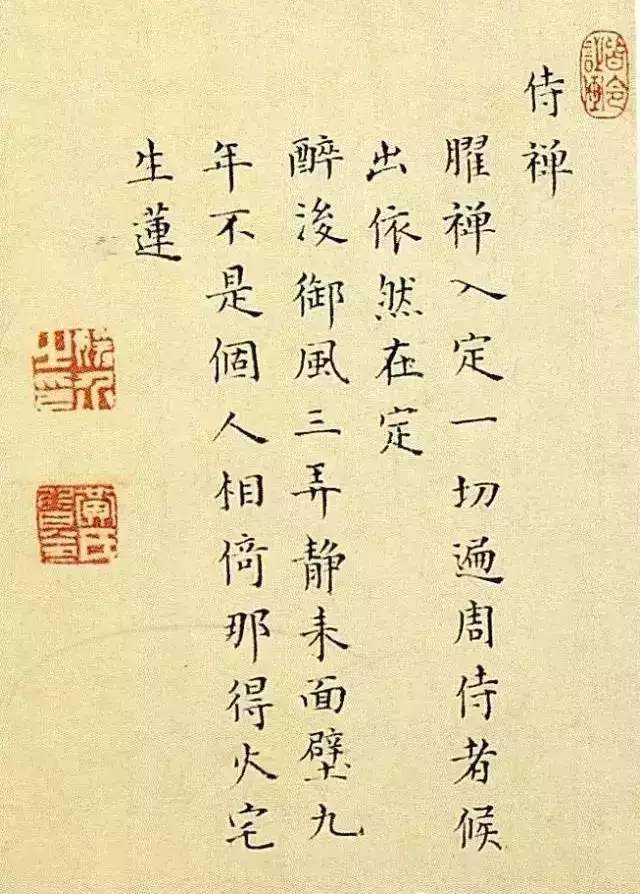 侍禅
臞禅入定一切遍周侍者候
出依然在定
醉后御風三弄静来面壁九
年不是個人相倚那得火宅
生蓮